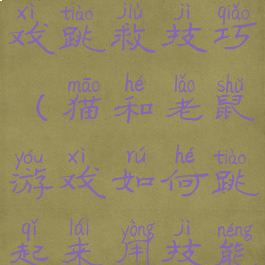 xì tiào jiù jì qiǎo
戏跳救技巧
māo hé lǎo shǔ
(猫和老鼠
yóu xì rú hé tiào
游戏如何跳
qǐ lái yòng jì néng
起来用技能